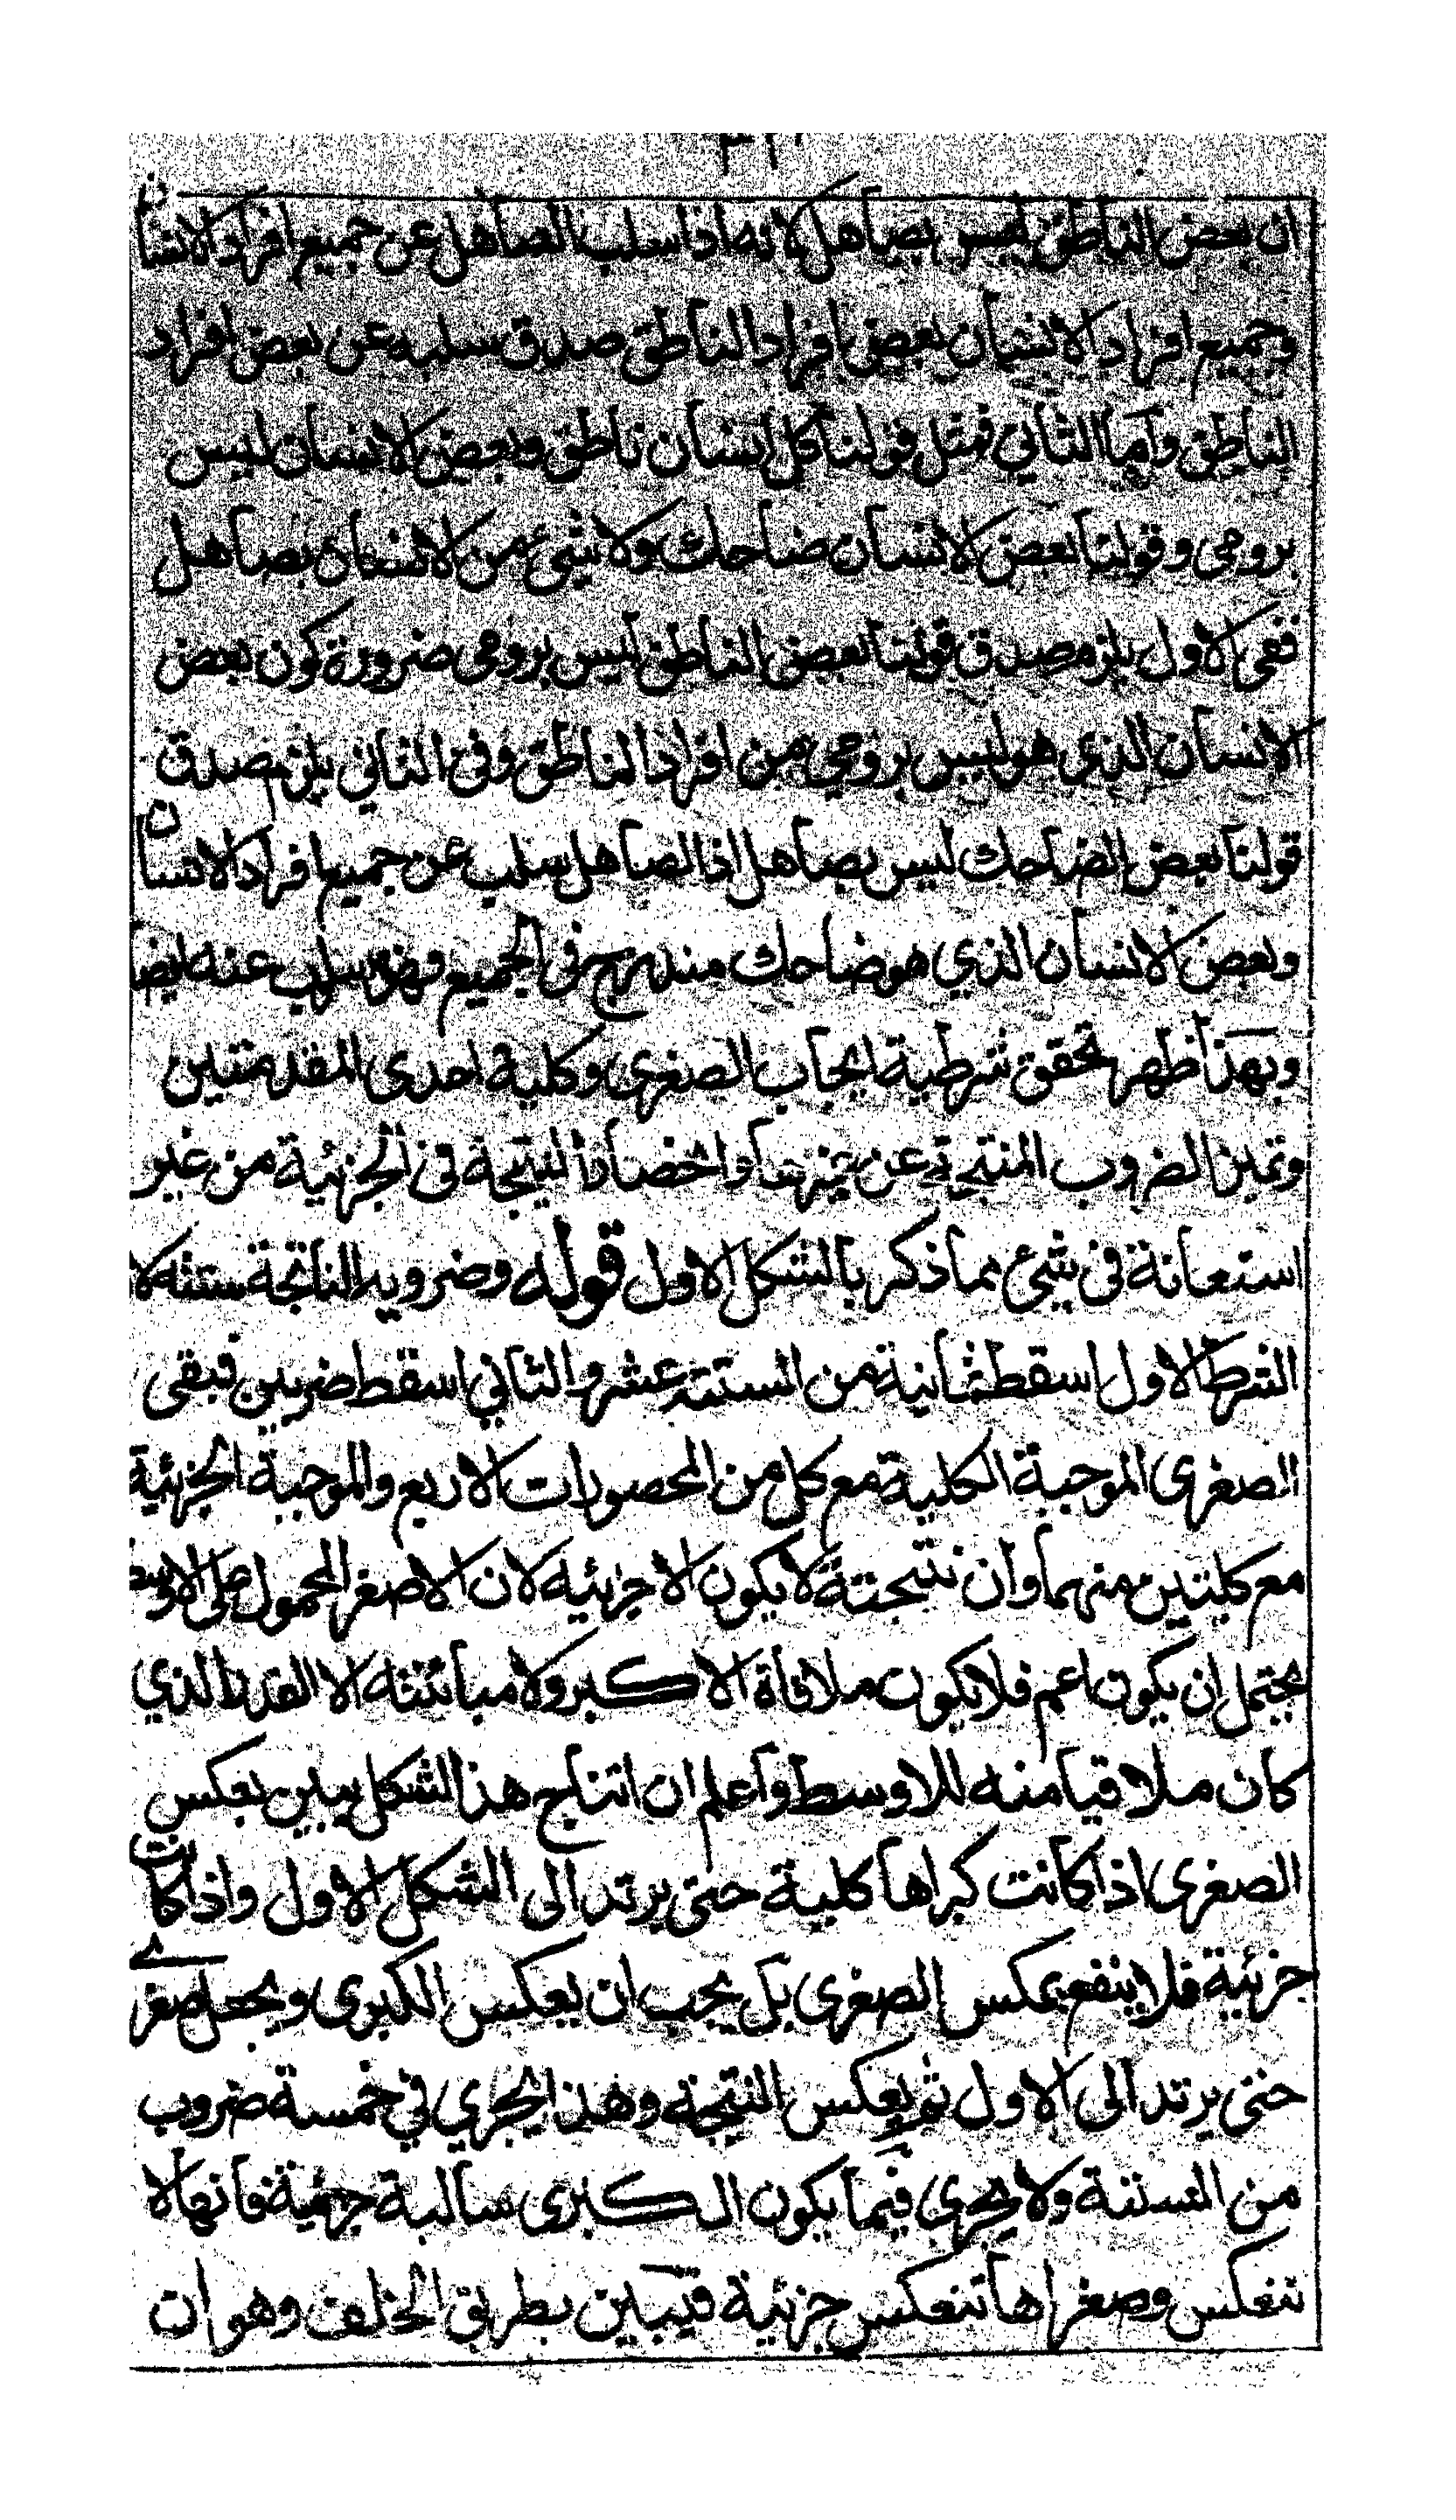 ان بعض الناطق ليس بصاهل لانه اذا سلب الصاهل عن جميع افراد الانسان
وجميع افراد الانسان بعض افراد الناطق صدق سلبه عن بعض افراد
الناطق واما الثاني فمثل قولنا كل انسان ناطق وبعض الانسان ليس
برومى وقولنا بعض الانسان ضاحك ولا شئ من الانسان بصاهل
ففى الاول يلزم صدق قولنا بعض الناطق ليس برومى ضرورة كون بعض
الانسان الذى هو ليس برومي من افراد الناطق وفى الثاني يلزم صدق
قولنا بعض الضاحك ليس بصاهل اذا الصاهل سلب عن جميع افراد الانسان
وبعض الانسان الذي هو ضاحك مندرج فى الجميع فهو سلب عنه ايضا
وبهذا ظهر تحقق شرطية ايجاب الصغرى وكلية احدى المقدمتين
وتميز الضروب المنتجة عن غيرها واختصار النتيجة فى الجزئية من غير
استعانة فى شئ مما ذكر بالشكل الاول قوله وضروبه الناتجة ستة لان
الشرط الاول اسقط ثمانية من الستة عشر والثاني اسقط ضربين فبقى
الصغرى الموجبة الكلية مع كل من المحصورات الاربع والموجبة الجزئية
مع كليتين منهما وان نتيجته لا يكون الا جزئية لان الاصغر المحمول على الاوسط
يحتمل ان يكون اعم فلا يكون ملاقاة الاكبر ولا مباينته الا القدر الذي
كان ملاقيا منه للاوسط واعلم ان انتاج هذا الشكل يبين بعكس
الصغرى اذا كانت كبراها كلية حتى يرتد الى الشكل الاول واذا كانت
جزئية فلا ينفع عكس الصغرى بل يجب ان يعكس الكبرى ويجعل صغرى
حتى يرتد الى الاول ثم يعكس النتيجة وهذا يجري في خمسة ضروب
من الستة ولا يجرى فيما يكون الكبرى سالبة جزئية فانها لا
تنعكس وصغراها تنعكس جزئية فتبين بطريق الخلف وهو ان